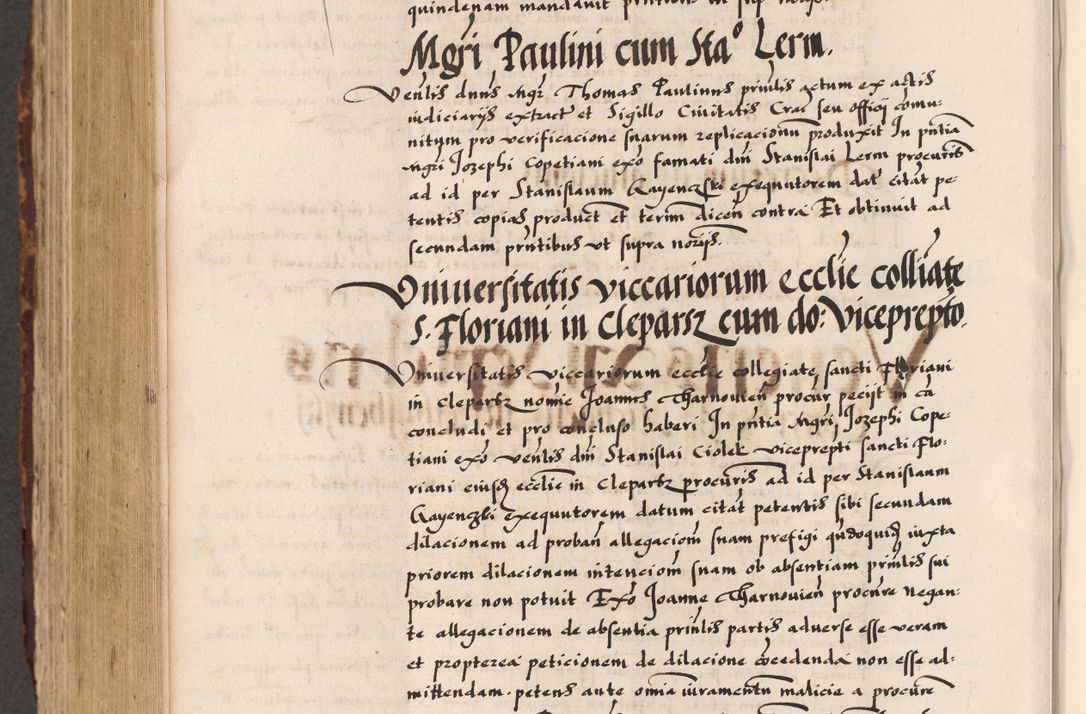 quindenam mandavit
Mgri Paulini cum Sta° Lerm.
Venlis dnus Mgr Thomas Paulinus prinlis actum ex actis
iudiciarijs extract et Sigillo Civitatis Crac seu officij comu-
nitum pro verificacione suarum replicacionu produxit In pntia
Mgri Jozephi Copetiani exo famati dni Stanislai Lerm procuris
ad id per Stanislaum Kayenczski exequutorem dat citat pe-
tentis copias product et termi dicen contra Et obtinuit ad
secundam prntibus ut supra norijs.
Universitatis viccariorum ecclie colliate
S. Floriani in Cleparsz cum do: Viceprepto
Universitatis viccariorum ecclie collegiate sancti Floriani
in Clepartz nomie Joannis Tharnovien procur petijt in ca
concludi et pro concluso haberi In pntia Mgri Jozephi Cope-
tiani exo venlis dni Stanislai Ciolek viceprepti sancti Flo-
riani eiusq ecclie in Clepartz procuris ad id per Stanislaum
Kayenczki exequutorem datum citat petentis sibi secundam
dilacionem ad proban allegaciom suam prefigi quoquis iuxta
priorem dilacionem intenciom suam ob absentiam prinlis sui
probare non potuit Exo Joanne Tharnovien procure negan-
te allegacionem de absentia prinlis partis adverse esse veram
et propterea peticionem de dilacione coedenda non esse ad-
mittendam. petens ante omia iuramentu malicie a procure